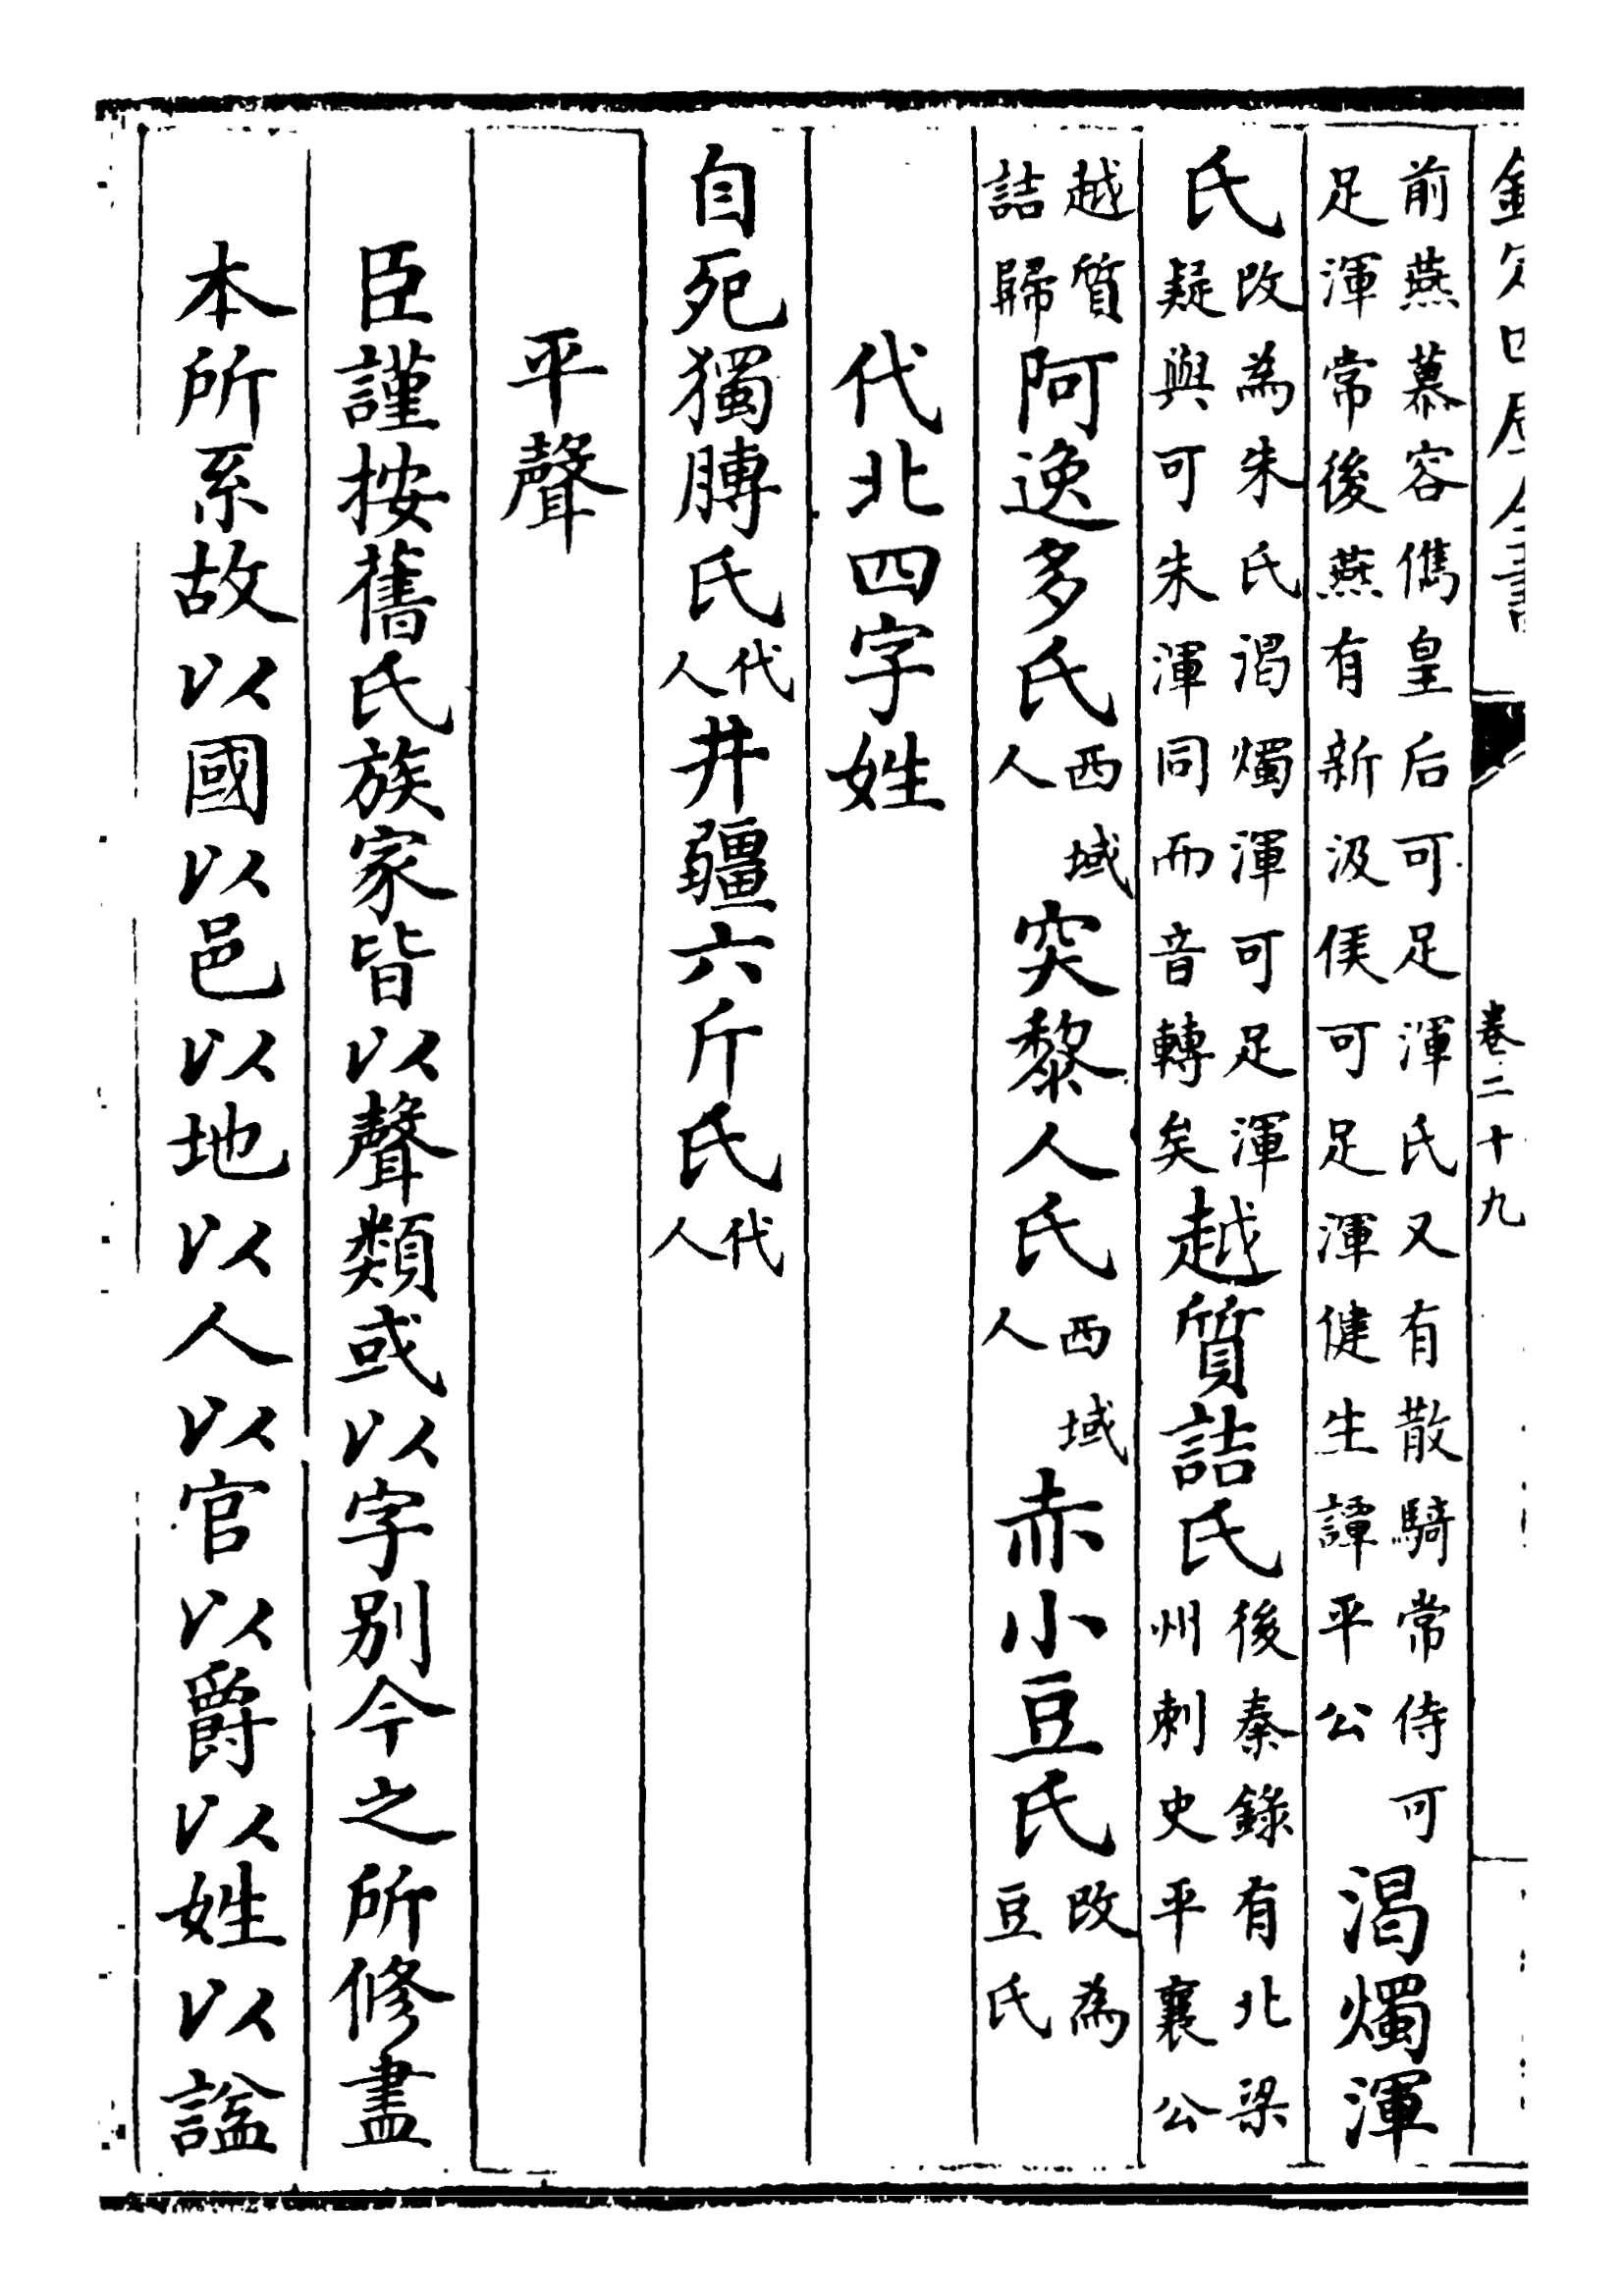 欽定四庫全書 卷二十九
前燕慕容儁皇后可足渾氏又有散騎常侍可
足渾常後燕有新汲侯可足渾健生譚平公
渴燭渾
氏
改為朱氏渴燭渾可足渾
疑與可朱渾同而音轉矣
越質詰氏
後秦錄有北梁
州刺史平襄公
越質
詰歸
阿逸多氏
西域
人
突黎人氏
西域
人
赤小豆氏
改為
豆氏
代北四字姓
自死獨膊氏
代
人
井疆六斤氏
代
人
平聲
臣謹按舊氏族家皆以聲類或以字别今之所修盡
本所系故以國以邑以地以人以官以爵以姓以諡